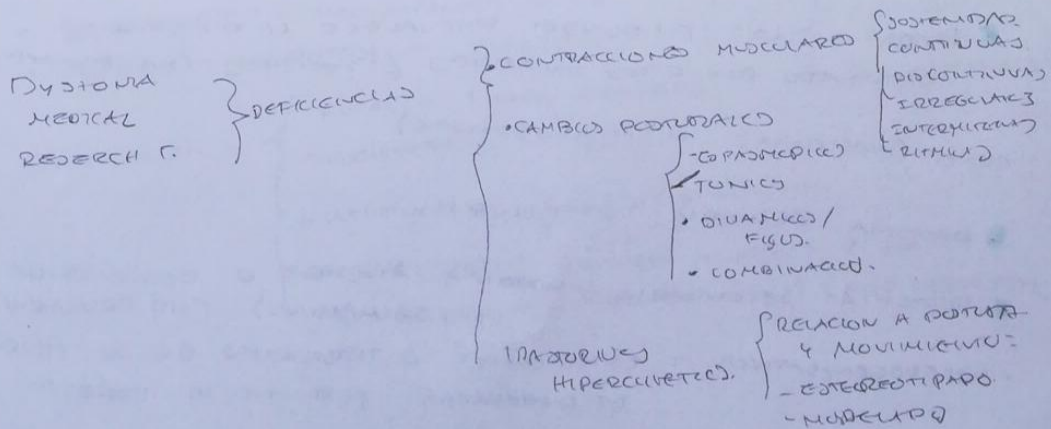 DYSTONIA
MEDICAL
RESERCH F.
DEFICIENCIAS
• CONTRACCIONES MUSCULARES
SOSTENIDAS
CONTINUAS
DISCONTINUAS
IRREGULARES
INTERMITENTES
RITMICAS
• CAMBIOS POSTURALES
- ESPASMODICOS
- TONICOS
• DINAMICOS /
FIJOS.
• COMBINACION.
TRASTORNOS
HIPERCINETICOS.
RELACION A POSTURA
Y MOVIMIENTO:
- ESTEREOTIPADO
- MODELADO